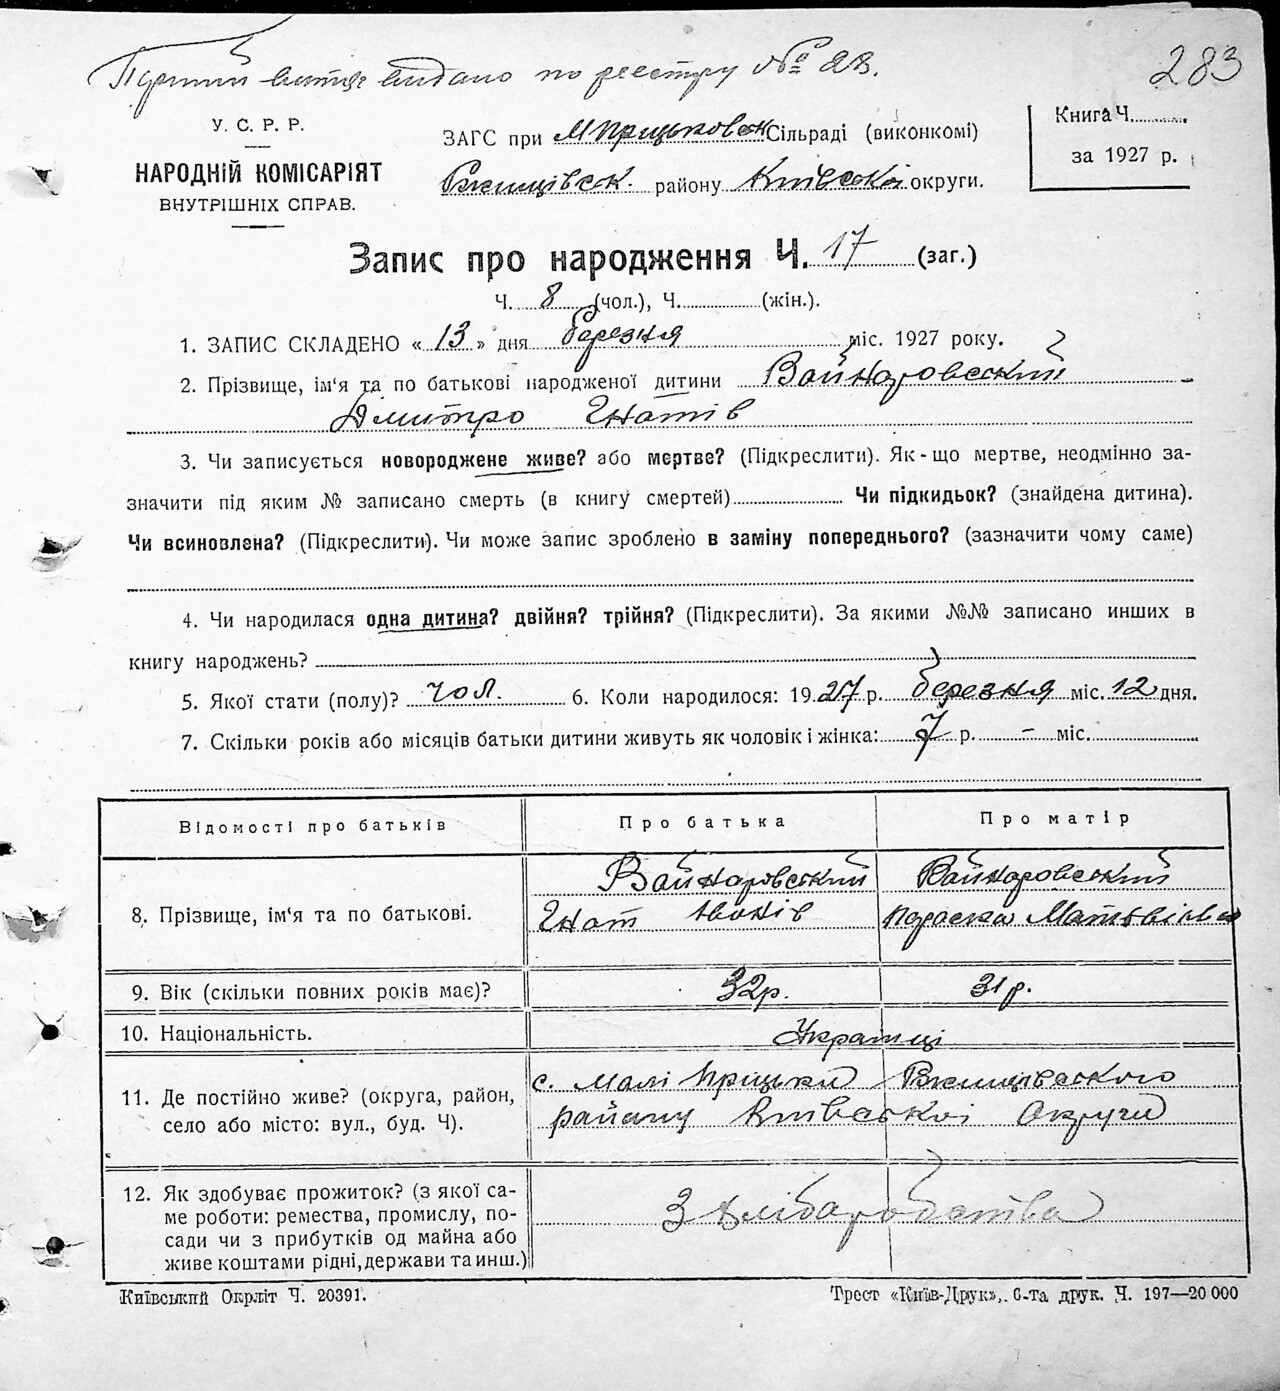 Перший витяг видано по реєстру № 23.
283
У. С. Р. Р.
НАРОДНІЙ КОМІСАРІЯТ
ВНУТРІШНІХ СПРАВ.
ЗАГС при М Прицьковск Сільраді (виконкомі)
Ржищівськ. району Київської округи.
Книга Ч.
за 1927 р.
Запис про народження Ч. 17 (заг.)
Ч. 8 (чол.), Ч. (жін.).
1. ЗАПИС СКЛАДЕНО « 13 » дня березня міс. 1927 року.
2. Прізвище, ім'я та по батькові народженої дитини Войнаровський
Дмитро Гнатів
3. Чи записується новороджене живе? або мертве? (Підкреслити). Як-що мертве, неодмінно за-
значити під яким № записано смерть (в книгу смертей) Чи підкидьок? (знайдена дитина).
Чи всиновлена? (Підкреслити). Чи може запис зроблено в заміну попереднього? (зазначити чому саме)
4. Чи народилася одна дитина? двійня? трійня? (Підкреслити). За якими №№ записано инших в
книгу народжень?
5. Якої стати (полу)? чол. 6. Коли народилося: 1927 р. березня міс. 12 дня.
7. Скільки років або місяців батьки дитини живуть як чоловік і жінка: 7 р. — міс.
Відомості про батьків Про батька Про матір
8. Прізвище, ім'я та по батькові. Войнаровський Гнат Іванів Войнаровский Параска Матьвієва
9. Вік (скільки повних років має)? 32р. 31 р.
10. Національність. Українці
11. Де постійно живе? (округа, район, с. Малі Пріцьки Ржищівського
село або місто: вул., буд. Ч). району Київської Округи
12. Як здобуває прожиток? (з якої са-
ме роботи: ремества, промислу, по- З хліборобства
сади чи з прибутків од майна або
живе коштами рідні, держави та инш.)
Київський Окрліт Ч. 20391.
Трест «Київ-Друк», 6-та друк. Ч. 197—20 000